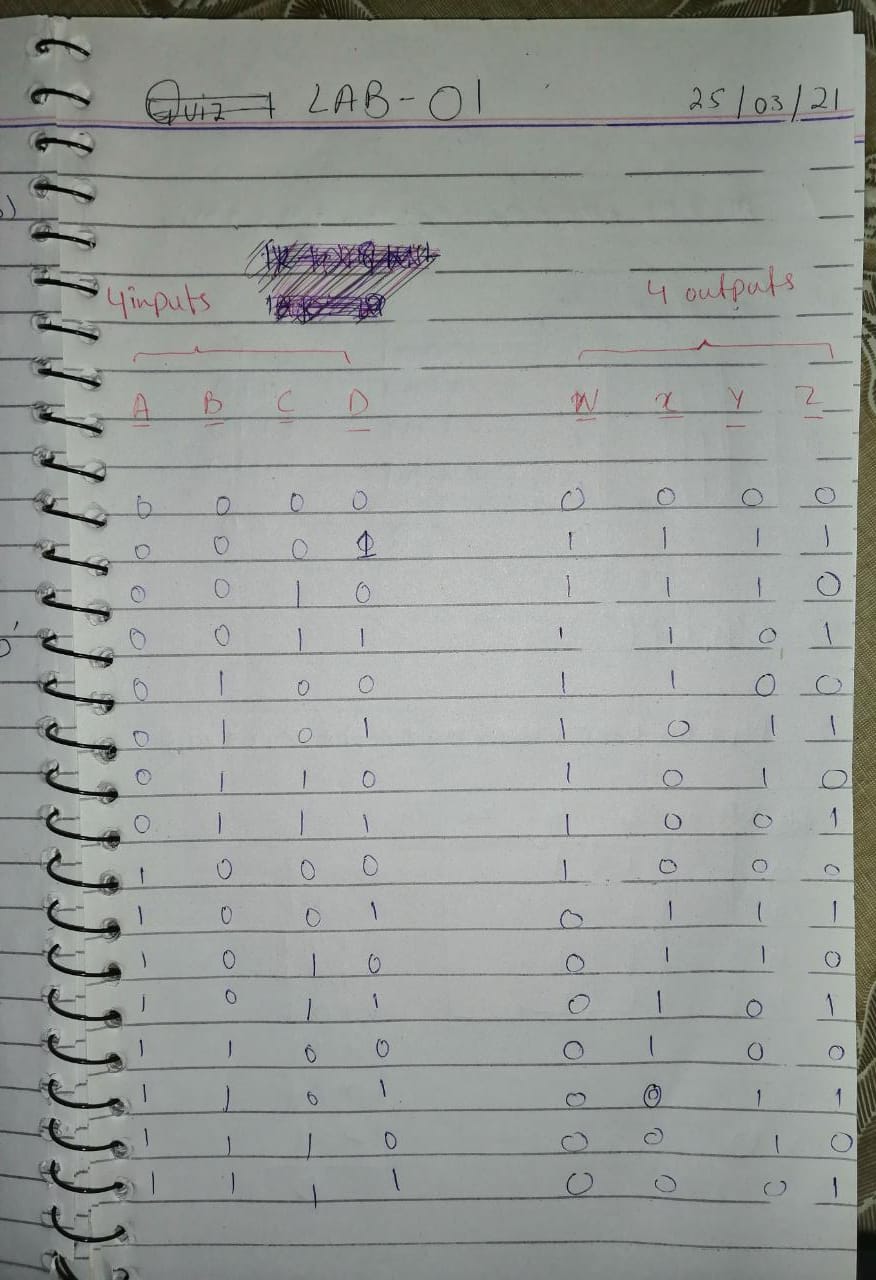 Quiz LAB-01 25/03/21
4 inputs 4 outputs
A B C D W X Y Z
0 0 0 0 0 0 0 0
0 0 0 1 1 1 1 1
0 0 1 0 1 1 1 0
0 0 1 1 1 1 0 1
0 1 0 0 1 1 0 0
0 1 0 1 1 0 1 1
0 1 1 0 1 0 1 0
0 1 1 1 1 0 0 1
1 0 0 0 1 0 0 0
1 0 0 1 0 1 1 1
1 0 1 0 0 1 1 0
1 0 1 1 0 1 0 1
1 1 0 0 0 1 0 0
1 1 0 1 0 0 1 1
1 1 1 0 0 0 1 0
1 1 1 1 0 0 0 1